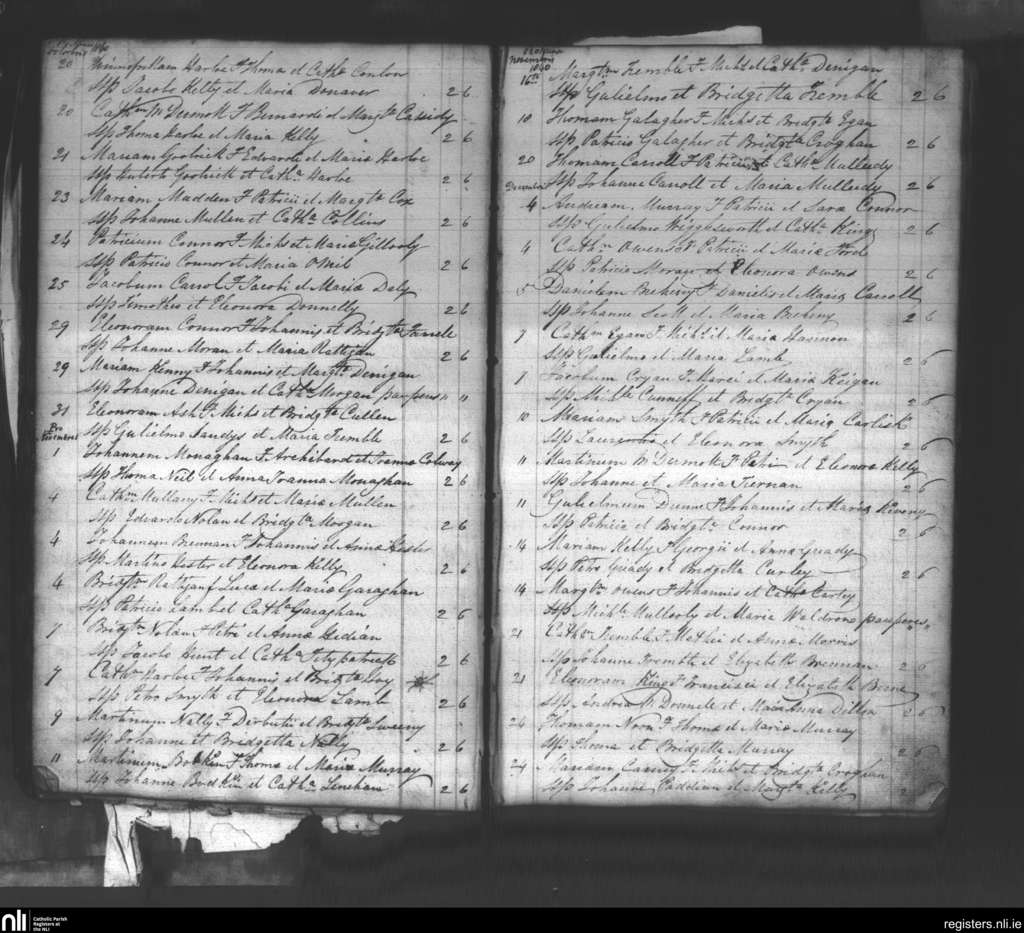 Octobris 1840
20 Harloe F Thoma et Cath^a Conlon
SSp Jacobo Kelly et Maria Donaver 2 6
20 Cath^m McDermott F Bernardi et Marg^ta Cassidy
SSp Thoma Harloe et Maria Kelly 2 6
21 Mariam F Edvardi et Maria Harloe
SSp et Cath^a Harloe 2 6
23 Mariam Madden F Patricii et Marg^ta Cox
SSp Johanne Mullen et Cath^a Collins 2 6
24 Patricium Connor F Mich^s et Maria Gillooly
SSp Patricio Connor et Maria ONeil 2 6
25 Jacobum Carrol F Jacobi et Maria Daly
SSp Timotheo et Eleonora Donnelly 2 6
29 Eleonoram Connor F Johannis et Bridg^ta Farrell
SSp Johanne Moran et Maria Rattjan 2 6
29 Mariam Kenny F Johannis et Marg^ta Denigan
SSp Johanne Denigan et Cath^a Morgan pauperes " "
31 Eleonoram Ash F Mich^s et Bridg^ta Cullen
SSp Gulielmo Sandys et Maria Tremble 2 6
Novembris
1 Johannem Monaghan F Archibard et Joanna Colway
SSp Thoma Neil et Anna Joanna Monaghan 2 6
4 Cath^m Mullany F Mich^s et Maria Mullen
SSp Edvardo Nolan et Bridg^ta Morgan
4 Johannem Brennan F Johannis et Anna Hester
SSp Martino Hester et Eleonora Kelly 2 6
4 Bridg^tm Rattjan f Luca et Maria Garaghan
SSp Patricio Lamb et Cath^a Garaghan 2 6
7 Bridg^tm Nolan F Petri et Anna Gidian
SSp Jacobo Hunt et Cath^a Fitzpatrick 2 6
7 Cath^m Harloe F Johannis et Bridg^ta
SSp Petro Smyth et Eleonora Lamb 2 6
9 Martinum Nally F Derbutii et Bridg^ta Sweeny
SSp Johanne et Bridgetta Nally 2 6
11 Martinum Bodkin F Thoma et Maria Murray
SSp Johanne Bodkin et Cath^a Linehan 2 6
Novembris
1840
16^th Marg^tm Tremble F Mich^s et Cath^a Denigan
SSp Gulielmo et Bridgetta Tremble 2 6
18 Thomam Galagher F Mich^s et Bridg^ta Egan
SSp Patricio Galagher et Bridg^ta Croghan 2 6
20 Thomam Carroll F Patricii et Cath^a Mulledy
SSp Johanne Carroll et Maria Mulledy 2 6
December
4 Andream Murray F Patricii et Sara Connor
SSp Gulielmo Wigglesworth et Cath^a King 2 6
4 Cath^m Owens F Patricii et Maria Ford
SSp Patricio Moran et Eleonora Owens 2 6
5 Danielem F Danielis et Maria Carroll
SSp Johanne Scott et Maria 2 6
7 Cath^m Egan F Mich^s et Maria
SSp Gulielmo et Maria Lamb 2 6
7 Jacobum Cryan F et Maria Keigan
SSp Mich^le Cunneff et Bridg^ta Cryan 2 6
10 Mariam Smyth F Patricii et Maria Carlisle
SSp Laurentio et Eleonora Smyth 2 6
11 Martinum McDermott F et Eleonora Kelly
SSp Johanne et Maria Tiernan 2 6
11 Gulielmum Dunne F Johannis et Maria
SSp Patricio et Bridg^ta Connor 2 6
14 Mariam Kelly F Georgii et Anna Gready
SSp Petro Gready et Bridgetta Curley 2 6
14 Marg^tm Owens F Johannis et Cath^a Carley
SSp Mich^le Mullerly et Maria Waldron pauperes " "
21 Cath^m Tremble F Mathei et Anna Morris
SSp Johanne Tremble et Elizabeth Brennan 2 6
21 Eleonoram King F Francisci et Elizabeth
SSp Andrea McDonnele et Maria Anna Dillon 2 6
24 Thomam Noon F Thoma et Maria Murray
SSp Thoma et Bridgetta Murray 2 6
24 Mariam F Mich^s et Bridg^ta Croghan
SSp Johanne Paddian et Marg^ta Kelly 2
nli Catholic Parish
Registers at
the NLI
registers.nli.ie